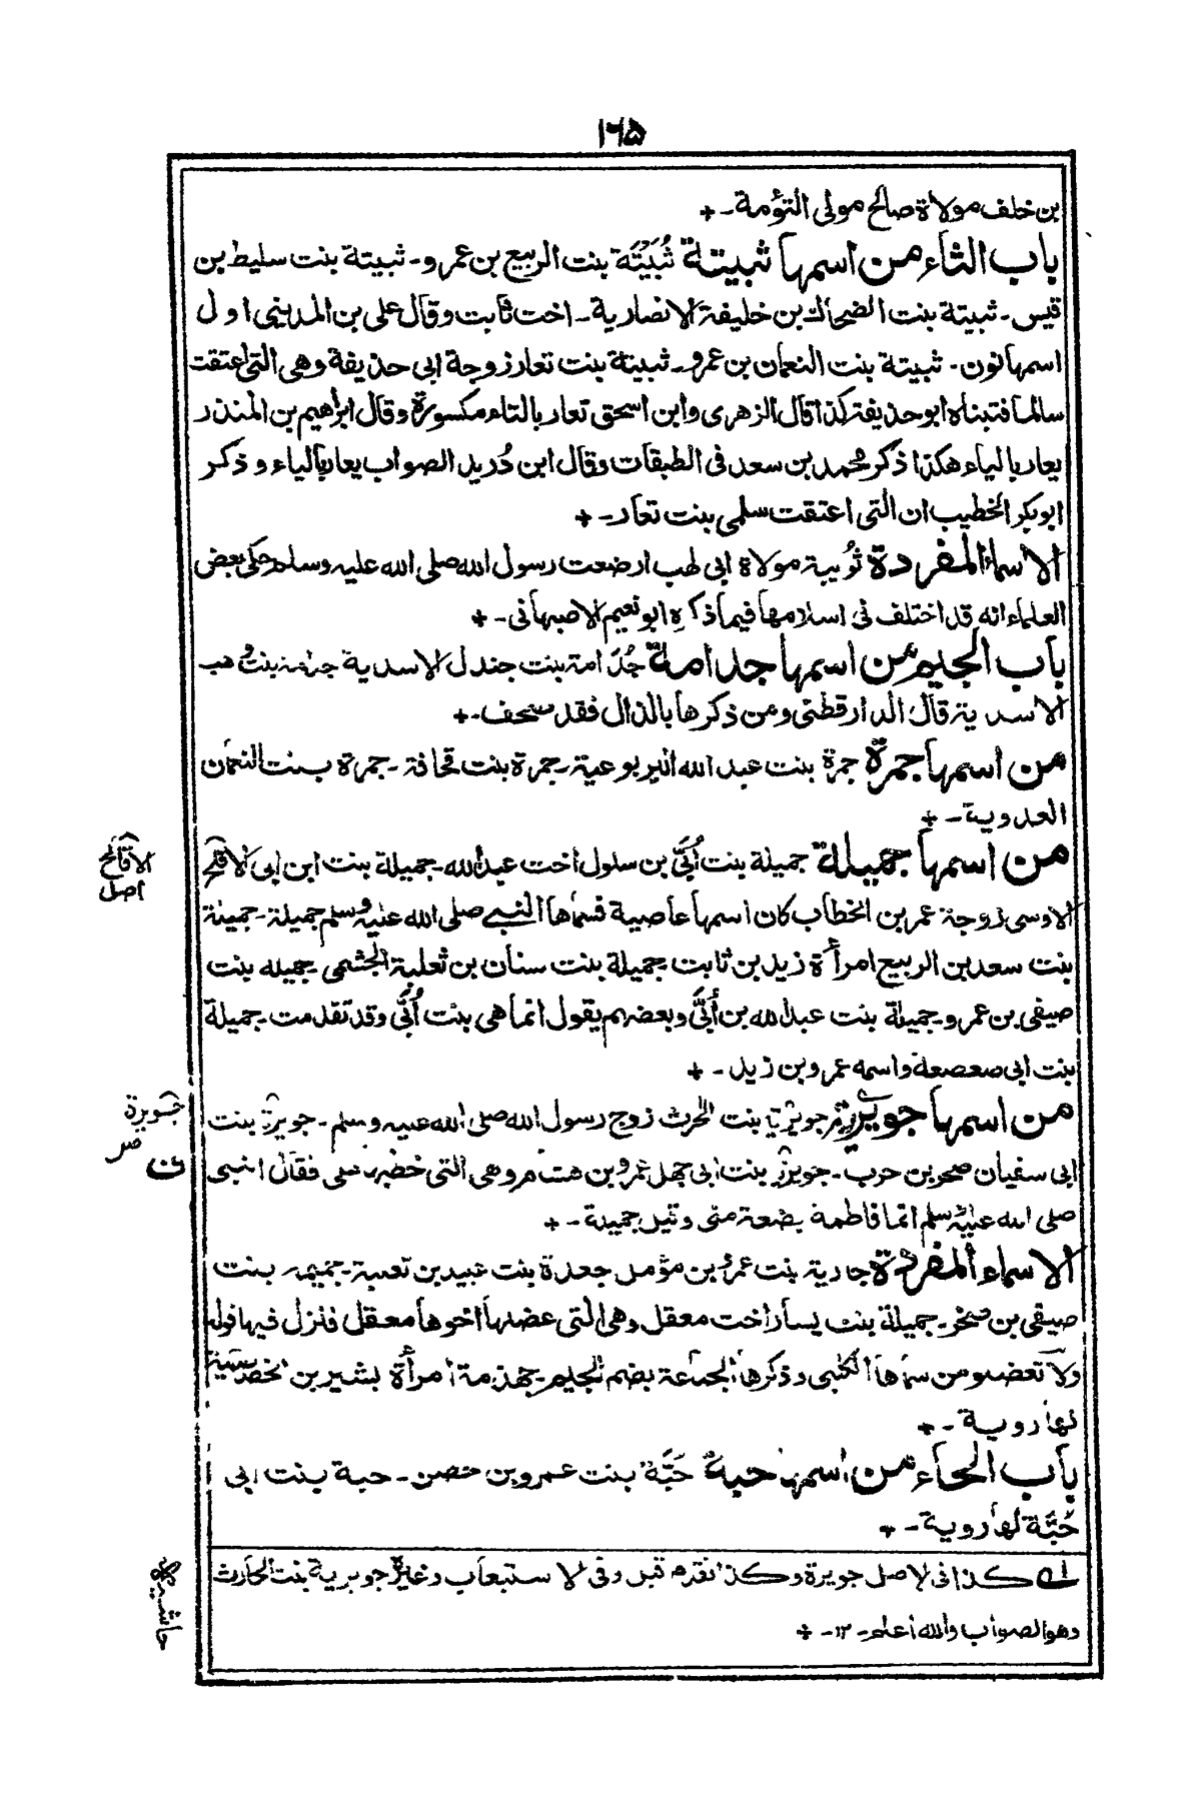 ١٦٥
بن خلف مولاة صالح مولى التؤمة ـ+
باب الثاء من اسمها ثبيتة ثُبَيْتَة بنت الربيع بن عمرو ـ ثبيتة بنت سليط بن
قيس ـ ثبيتة بنت الضحاك بن خليفة الانصارية ـ اخت ثابت وقال على بن المدينى اول
اسمها نون ـ ثبيتة بنت النعمان بن عمرو ـ ثبيتة بنت تعار زوجة ابى حذيفة وهى التى اعتقت
سالما فتبناه ابو حذيفة كذا قال الزهرى وابن اسحق تعار بالتاء مكسورة وقال ابراهيم بن المنذر
يعار بالياء هكذا ذكر محمد بن سعد فى الطبقات وقال ابن دُريد الصواب يعار بالياء وذكر
ابوبكر الخطيب ان التى اعتقت سلمى بنت تعار ـ+
الاسماء المفردة ثُويبة مولاة ابى لهب ارضعت رسول الله صلى الله عليه وسلم حكى بعض
العلماء انه قد اختلف فى اسلامها فيما ذكره ابو نعيم الاصبهانى ـ+
باب الجيم من اسمها جدامة جُدَامة بنت جندل الاسدية جدامة بنت وهب
الاسدية قال الدارقطنى ومن ذكرها بالذال فقد صحف ـ+
من اسمها جمرة جمرة بنت عبد الله اليربوعية ـ جمرة بنت قحافة ـ جمرة بنت النعمان
العدوية ـ+
من اسمها جميلة جميلة بنت أُبَىّ بن سلول اخت عبد الله ـ جميلة بنت ابن ابى الاقلح
الاوسى زوجة عمر بن الخطاب كان اسمها عاصية فسماها النبى صلى الله عليه وسلم جميلة ـ جميلة
بنت سعد بن الربيع امرأة زيد بن ثابت ـ جميلة بنت سنان بن ثعلبة الجشمى ـ جميله بنت
صيفى بن عمرو ـ جميلة بنت عبد الله بن أُبَىّ وبعضهم يقول انما هى بنت أُبَىّ وقد تقدمت ـ جميلة
بنت ابى صعصعة واسمه عمرو بن زيد ـ+
من اسمها جويرية بنت الحرث زوج رسول الله صلى الله عليه وسلم ـ جويرة بنت
ابى سفيان صخر بن حرب ـ جويرة بنت ابى جهل عمرو بن هشام وهى التى خطبها على فقال النبى
صلى الله عليه وسلم انما فاطمة بضعة منى وقيل جميلة ـ+
الاسماء المفردة جارية بنت عمرو بن مؤمل جعدة بنت عبيد بن ثعلبة ـ جميمه بنت
صيفى بن صخر ـ جميلة بنت يسار اخت معقل وهى التى عضلها اخوها معقل فنزل فيها قوله
ولا تعضلو ومن سماها الكلبى وذكرها الجماعة بضم الجيم ـ جهذمة امرأة بشير بن الخصاصية
لها روية ـ+
باب الحاء من اسمها حبة حَبَّة بنت عمرو بن حصن ـ حبة بنت ابى
حَبَّة لها روية ـ+
كذا فى الاصل جويرة وكذا تقدم قبل وفى الاستيعاب وغيره جويرية بنت الحارث
وهو الصواب والله اعلم ـ ١٢ـ+
الاقالح
اصل
جويرة
صر
ن
حاشية